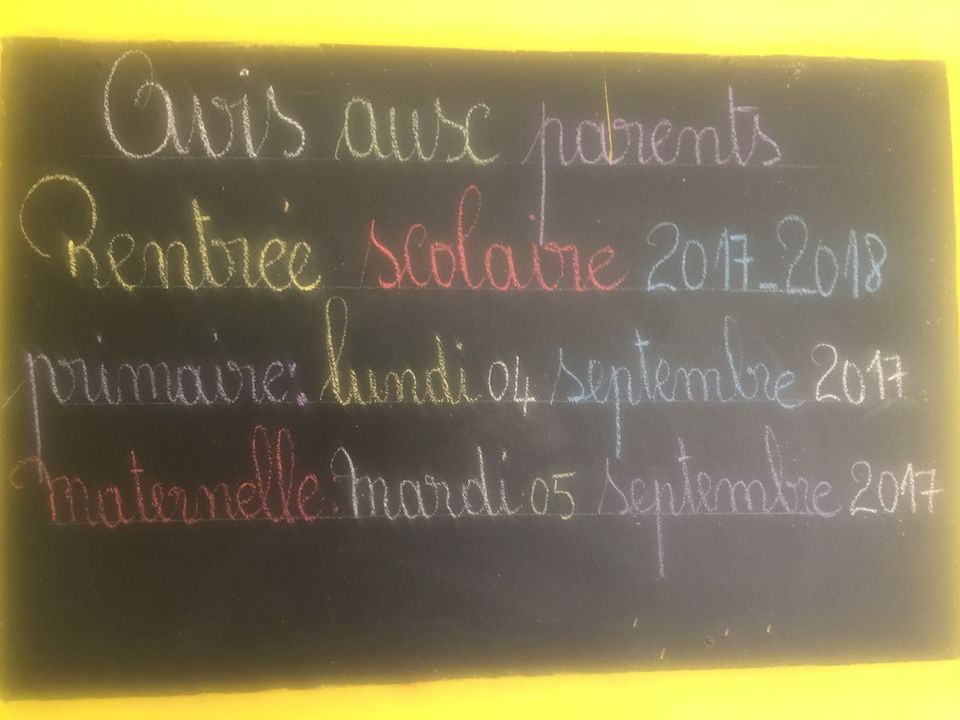 Avis aux parents
Rentrée scolaire 2017-2018
primaire: lundi 04 septembre 2017
Maternelle: Mardi 05 septembre 2017